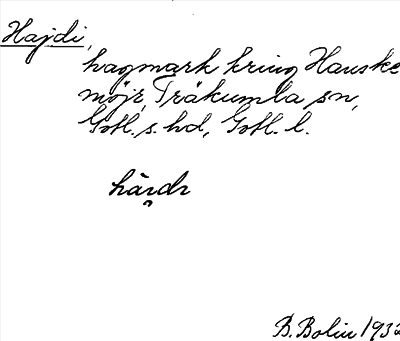 Hajdi,
hagmark kring Hauske
mojr, Träkumla sn,
Gotl. s. hd, Gotl. l.
B. Bolin 1932